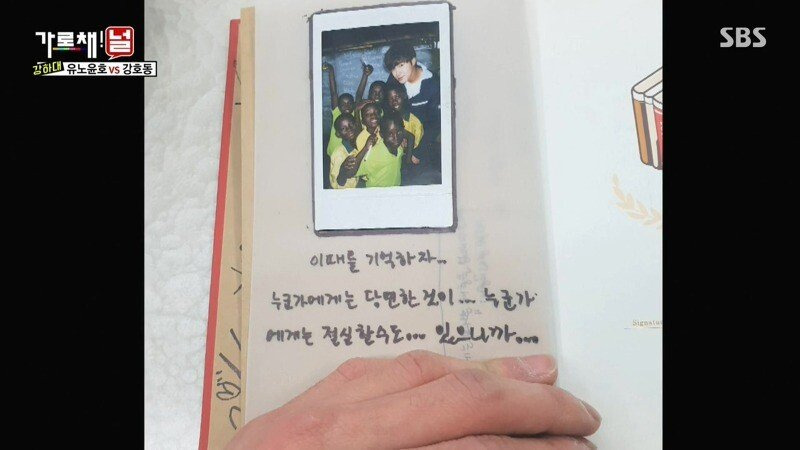 가로채!널
강하대 유노윤호 vs 강호동
SBS
이때를 기억하자..
누군가에게는 당연한 것이... 누군가
에게는 절실할수도... 있으니까...
Signatu